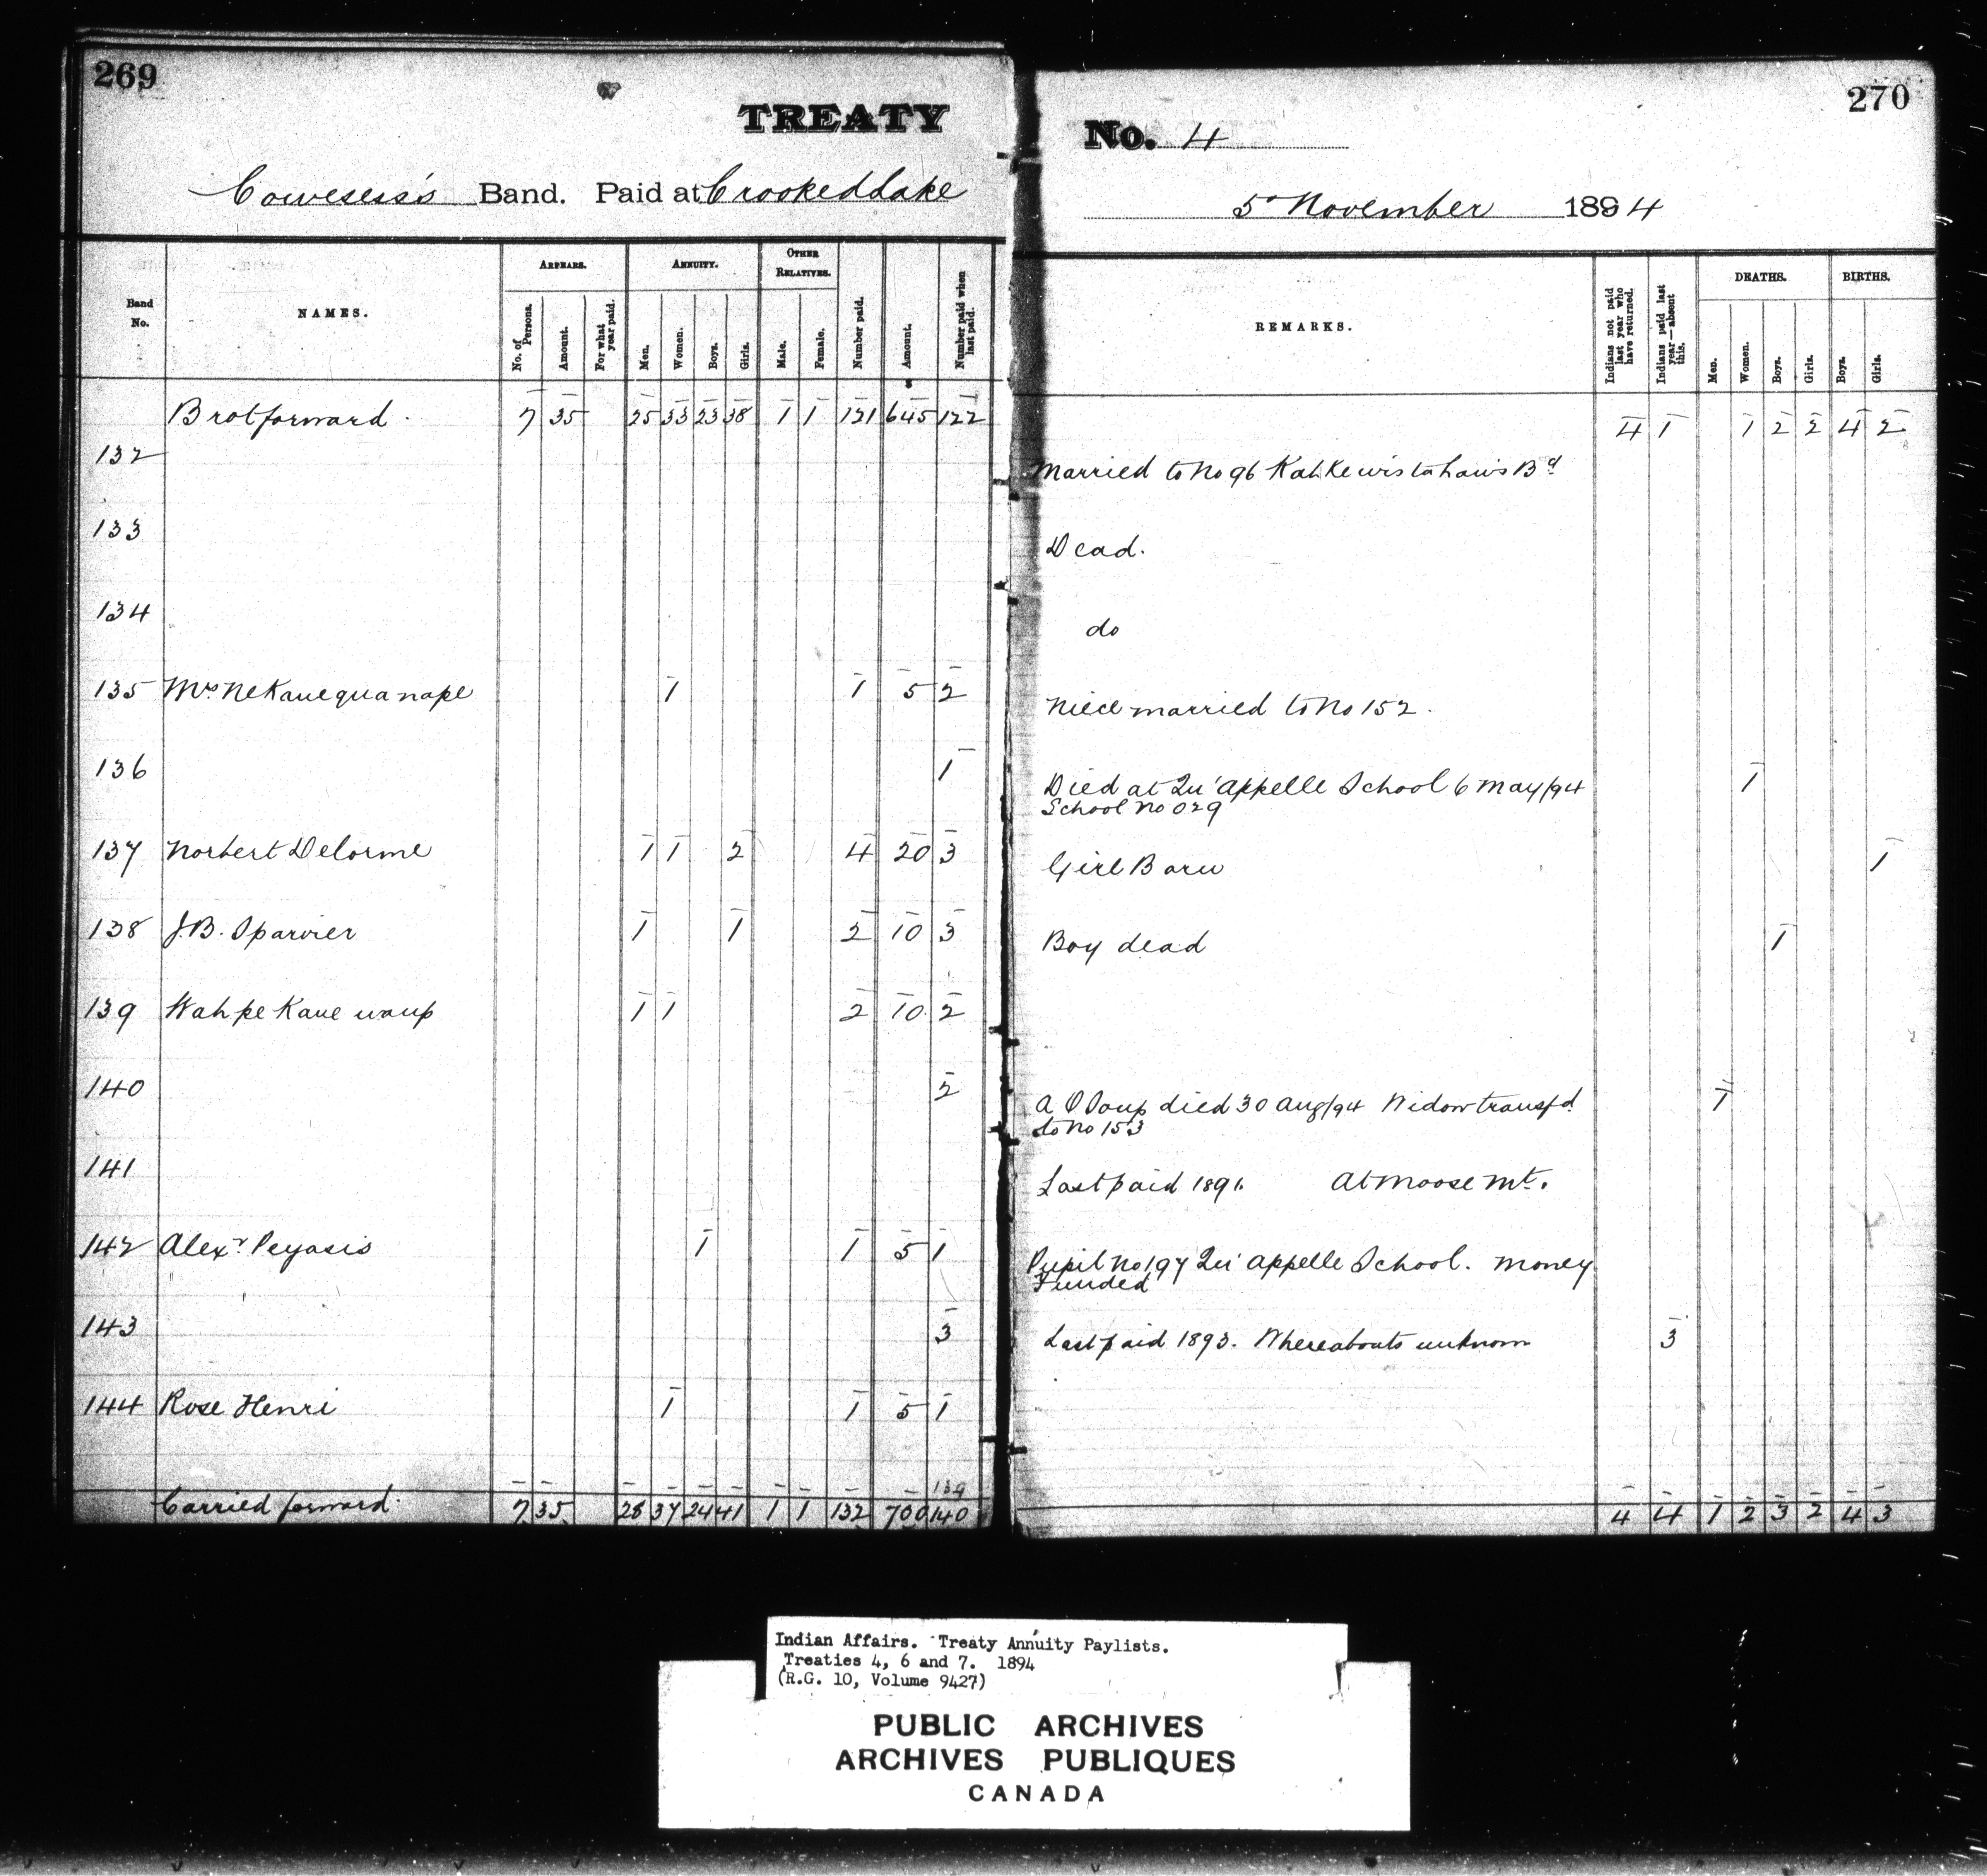 269
TREATY
Coweses's Band. Paid at Crooked Lake
Band No.
NAMES.
ARREARS.
No. of Persons.
Amount.
For what year paid.
ANNUITY.
Men.
Women.
Boys.
Girls.
OTHER RELATIVES.
Male.
Female.
Number paid.
Amount.
Number paid when last paid.
Brot forward. 7 35 25 33 23 38 1 1 121 645 122
132
133
134
135 Mrs Nekanequanape 1 1 5 2
136 1
137 Norbert Delorme 1 1 2 4 20 3
138 J.B. Sparvier 1 1 2 10 3
139 Wahpe Kane waup 1 1 2 10 2
140 2
141
142 Alexr Peyasis 1 1 5 1
143 3
144 Rose Henri 1 1 5 1
139
Carried forward. 7 35 28 37 24 41 1 1 132 700 140
270
No. 4
5th November 1894
REMARKS.
Indians not paid last year who have returned.
Indians paid last year—absent this.
DEATHS.
Men.
Women.
Boys.
Girls.
BIRTHS.
Boys.
Girls.
4 1 1 2 2 4 2
Married to No 96 Kahkewistahaw's Bd
Dead.
do
Niece married to No 152.
Died at Qu'Appelle School 6 May/94 1
School No 029
Girl Born 1
Boy dead 1
died 30 Aug/94 Widow transfd. 1
to No 153
Last paid 1891. At Moose Mt.
Pupil No 197 Qu'Appelle School. Money
Funded
Last paid 1893. Whereabouts unknown 3
4 4 1 2 3 2 4 3
Indian Affairs. Treaty Annuity Paylists.
Treaties 4, 6 and 7. 1894
(R.G. 10, Volume 9427)
PUBLIC ARCHIVES
ARCHIVES PUBLIQUES
CANADA